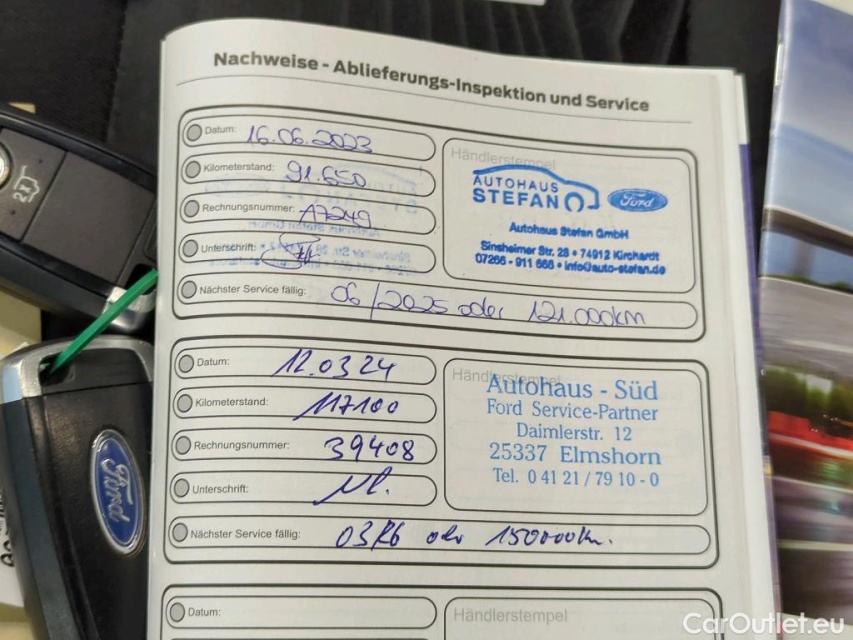 Nachweise - Ablieferungs-Inspektion und Service
Datum: 16.06.2023
Kilometerstand: 91.650
Rechnungsnummer: A7249
Unterschrift:
Nächster Service fällig: 06/2025 oder 121.000km
Händlerstempel
AUTOHAUS
STEFAN
Ford
Autohaus Stefan GmbH
Sinsheimer Str. 28 • 74912 Kirchardt
07266 - 911 666 • info@auto-stefan.de
Datum: 12.03.24
Kilometerstand: 117100
Rechnungsnummer: 39408
Unterschrift:
Nächster Service fällig: 03/26 oder 150000km.
Händlerstempel
Autohaus - Süd
Ford Service-Partner
Daimlerstr. 12
25337 Elmshorn
Tel. 0 41 21 / 79 10 - 0
Datum:
Händlerstempel
Ford
CarOutlet.eu